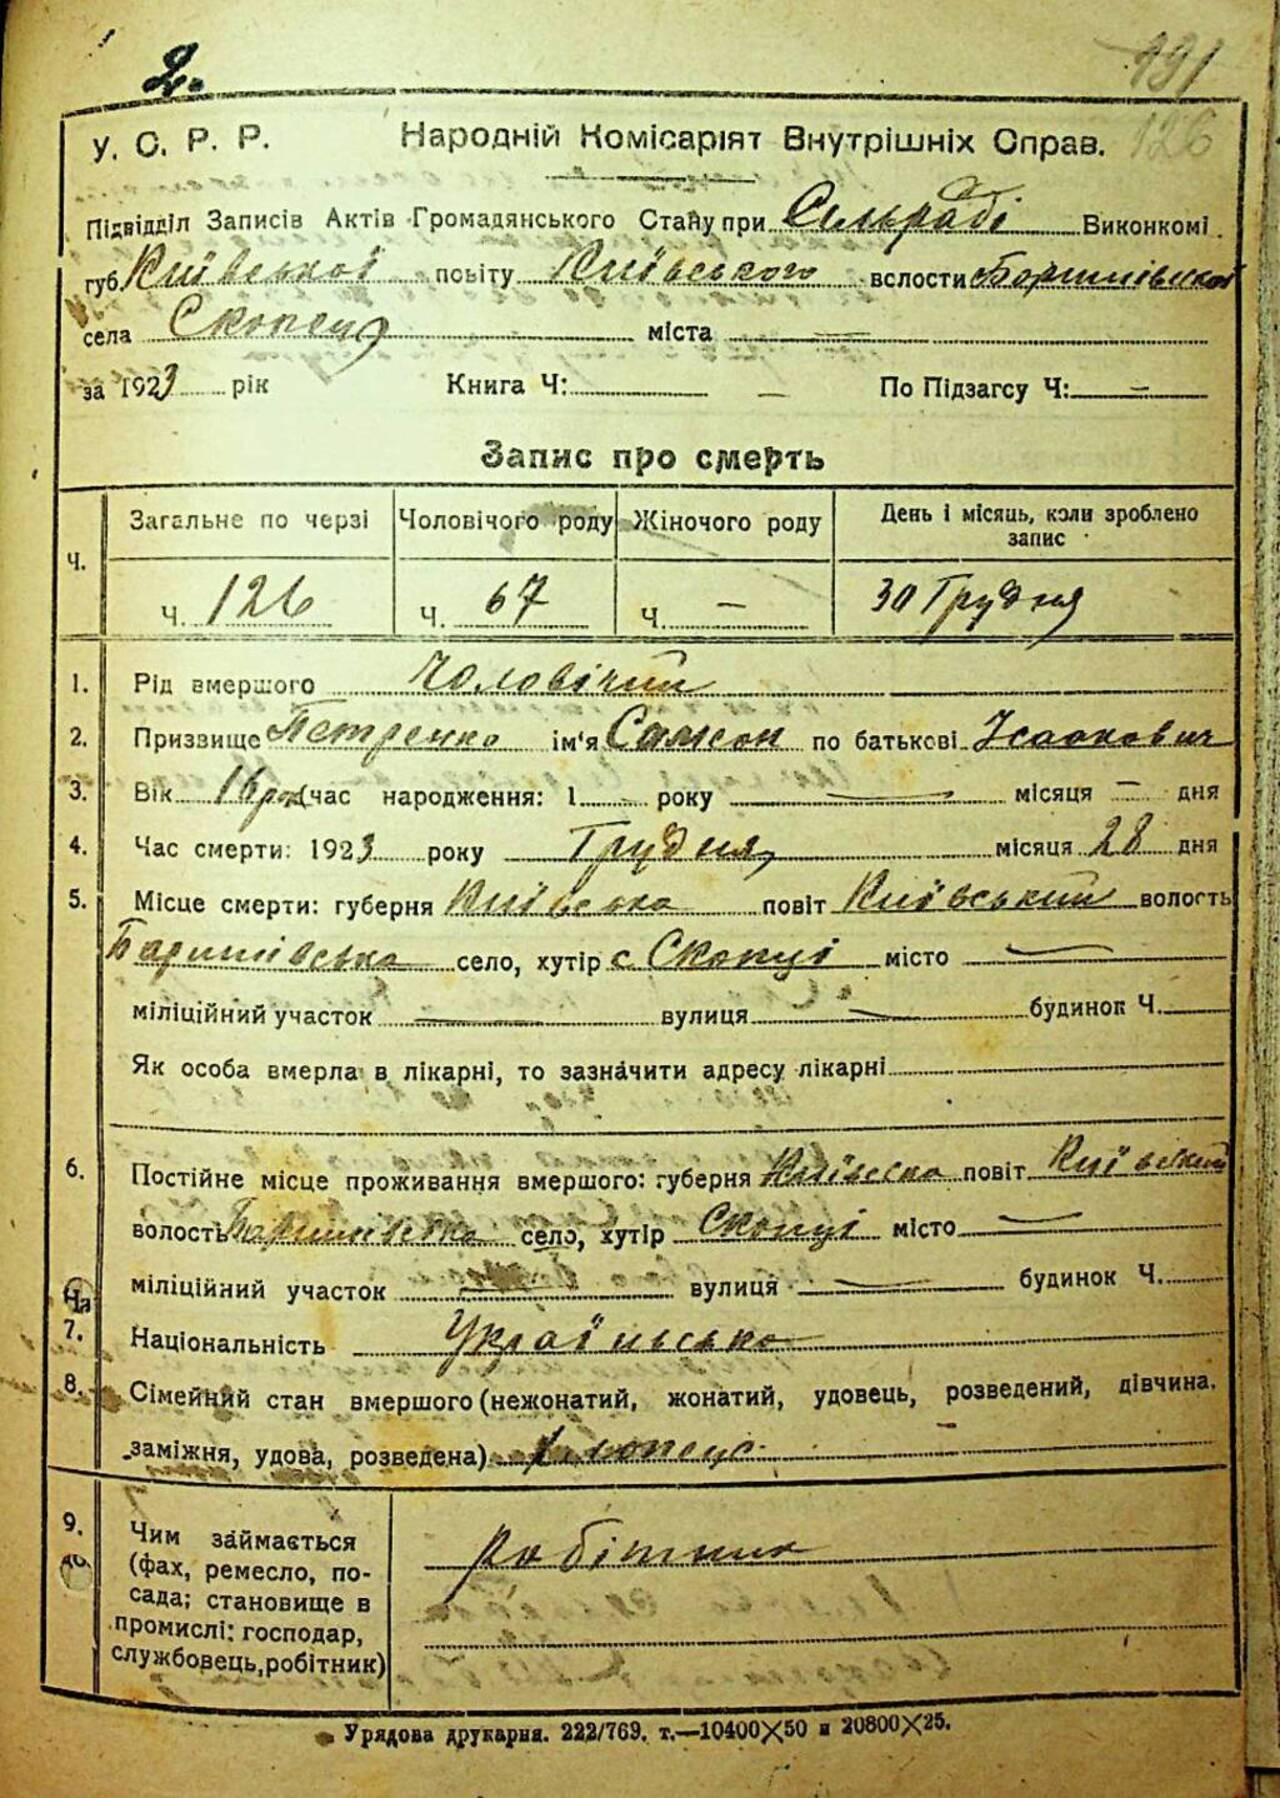 2.
191
126
У. С. Р. Р. Народній Комісаріят Внутрішніх Справ.
Підвідділ Записів Актів Громадянського Стану при Сільраді Виконкомі
губ. Київської повіту Київського волости Баришівської
села Скопец міста —
за 1923 рік Книга Ч: — По Підзагсу Ч: —
Запис про смерть
Ч. Загальне по черзі Чоловічого роду Жіночого роду День і місяць, коли зроблено запис
Ч. 126 Ч. 67 Ч. — 30 Грудня
1. Рід вмершого Чоловічий
2. Призвище Петренко ім'я Самсон по батькові Ісаакович
3. Вік 16 рок. (час народження: 1 — року — місяця — дня
4. Час смерти: 1923 року Грудня місяця 28 дня
5. Місце смерти: губерня Київська повіт Київський волость
Баришівська село, хутір с Скопці місто —
міліційний участок — вулиця — будинок Ч.
Як особа вмерла в лікарні, то зазначити адресу лікарні
6. Постійне місце проживання вмершого: губерня Київська повіт Київський
волость Баришівська село, хутір Скопці місто —
міліційний участок — вулиця — будинок Ч.
7. Національність Українська
8. Сімейний стан вмершого (нежонатий, жонатий, удовець, розведений, дівчина,
заміжня, удова, розведена) хлопець
9. Чим займається
(фах, ремесло, по-
сада; становище в
промислі: господар,
службовець, робітник)
робітник
Урядова друкарня. 222/769. т.—10400×50 и 20800×25.